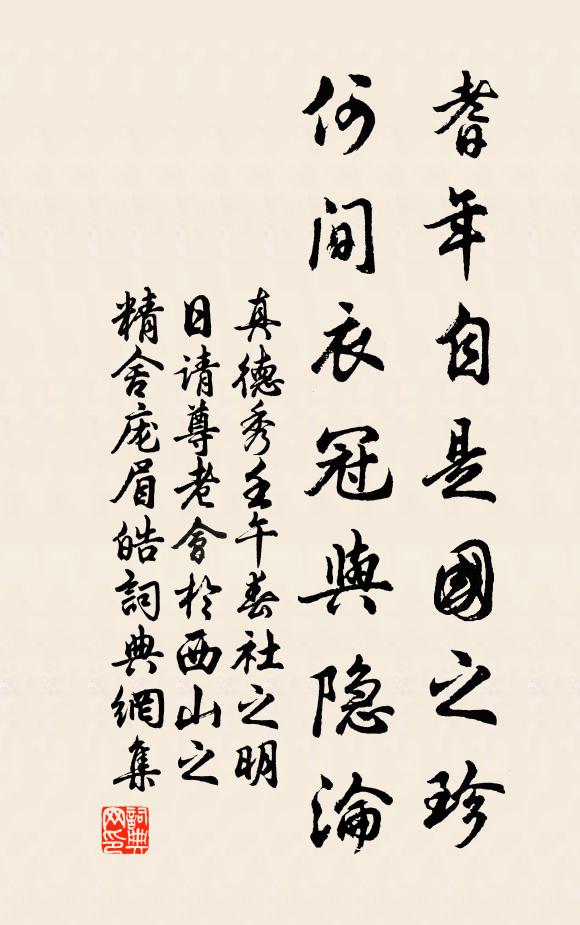 耆年自是國之珍
何間衣冠與隐淪
真德秀壬午春社之明
日请尊老會於西山之
精舍庞眉皓詞典網集
詞典網印